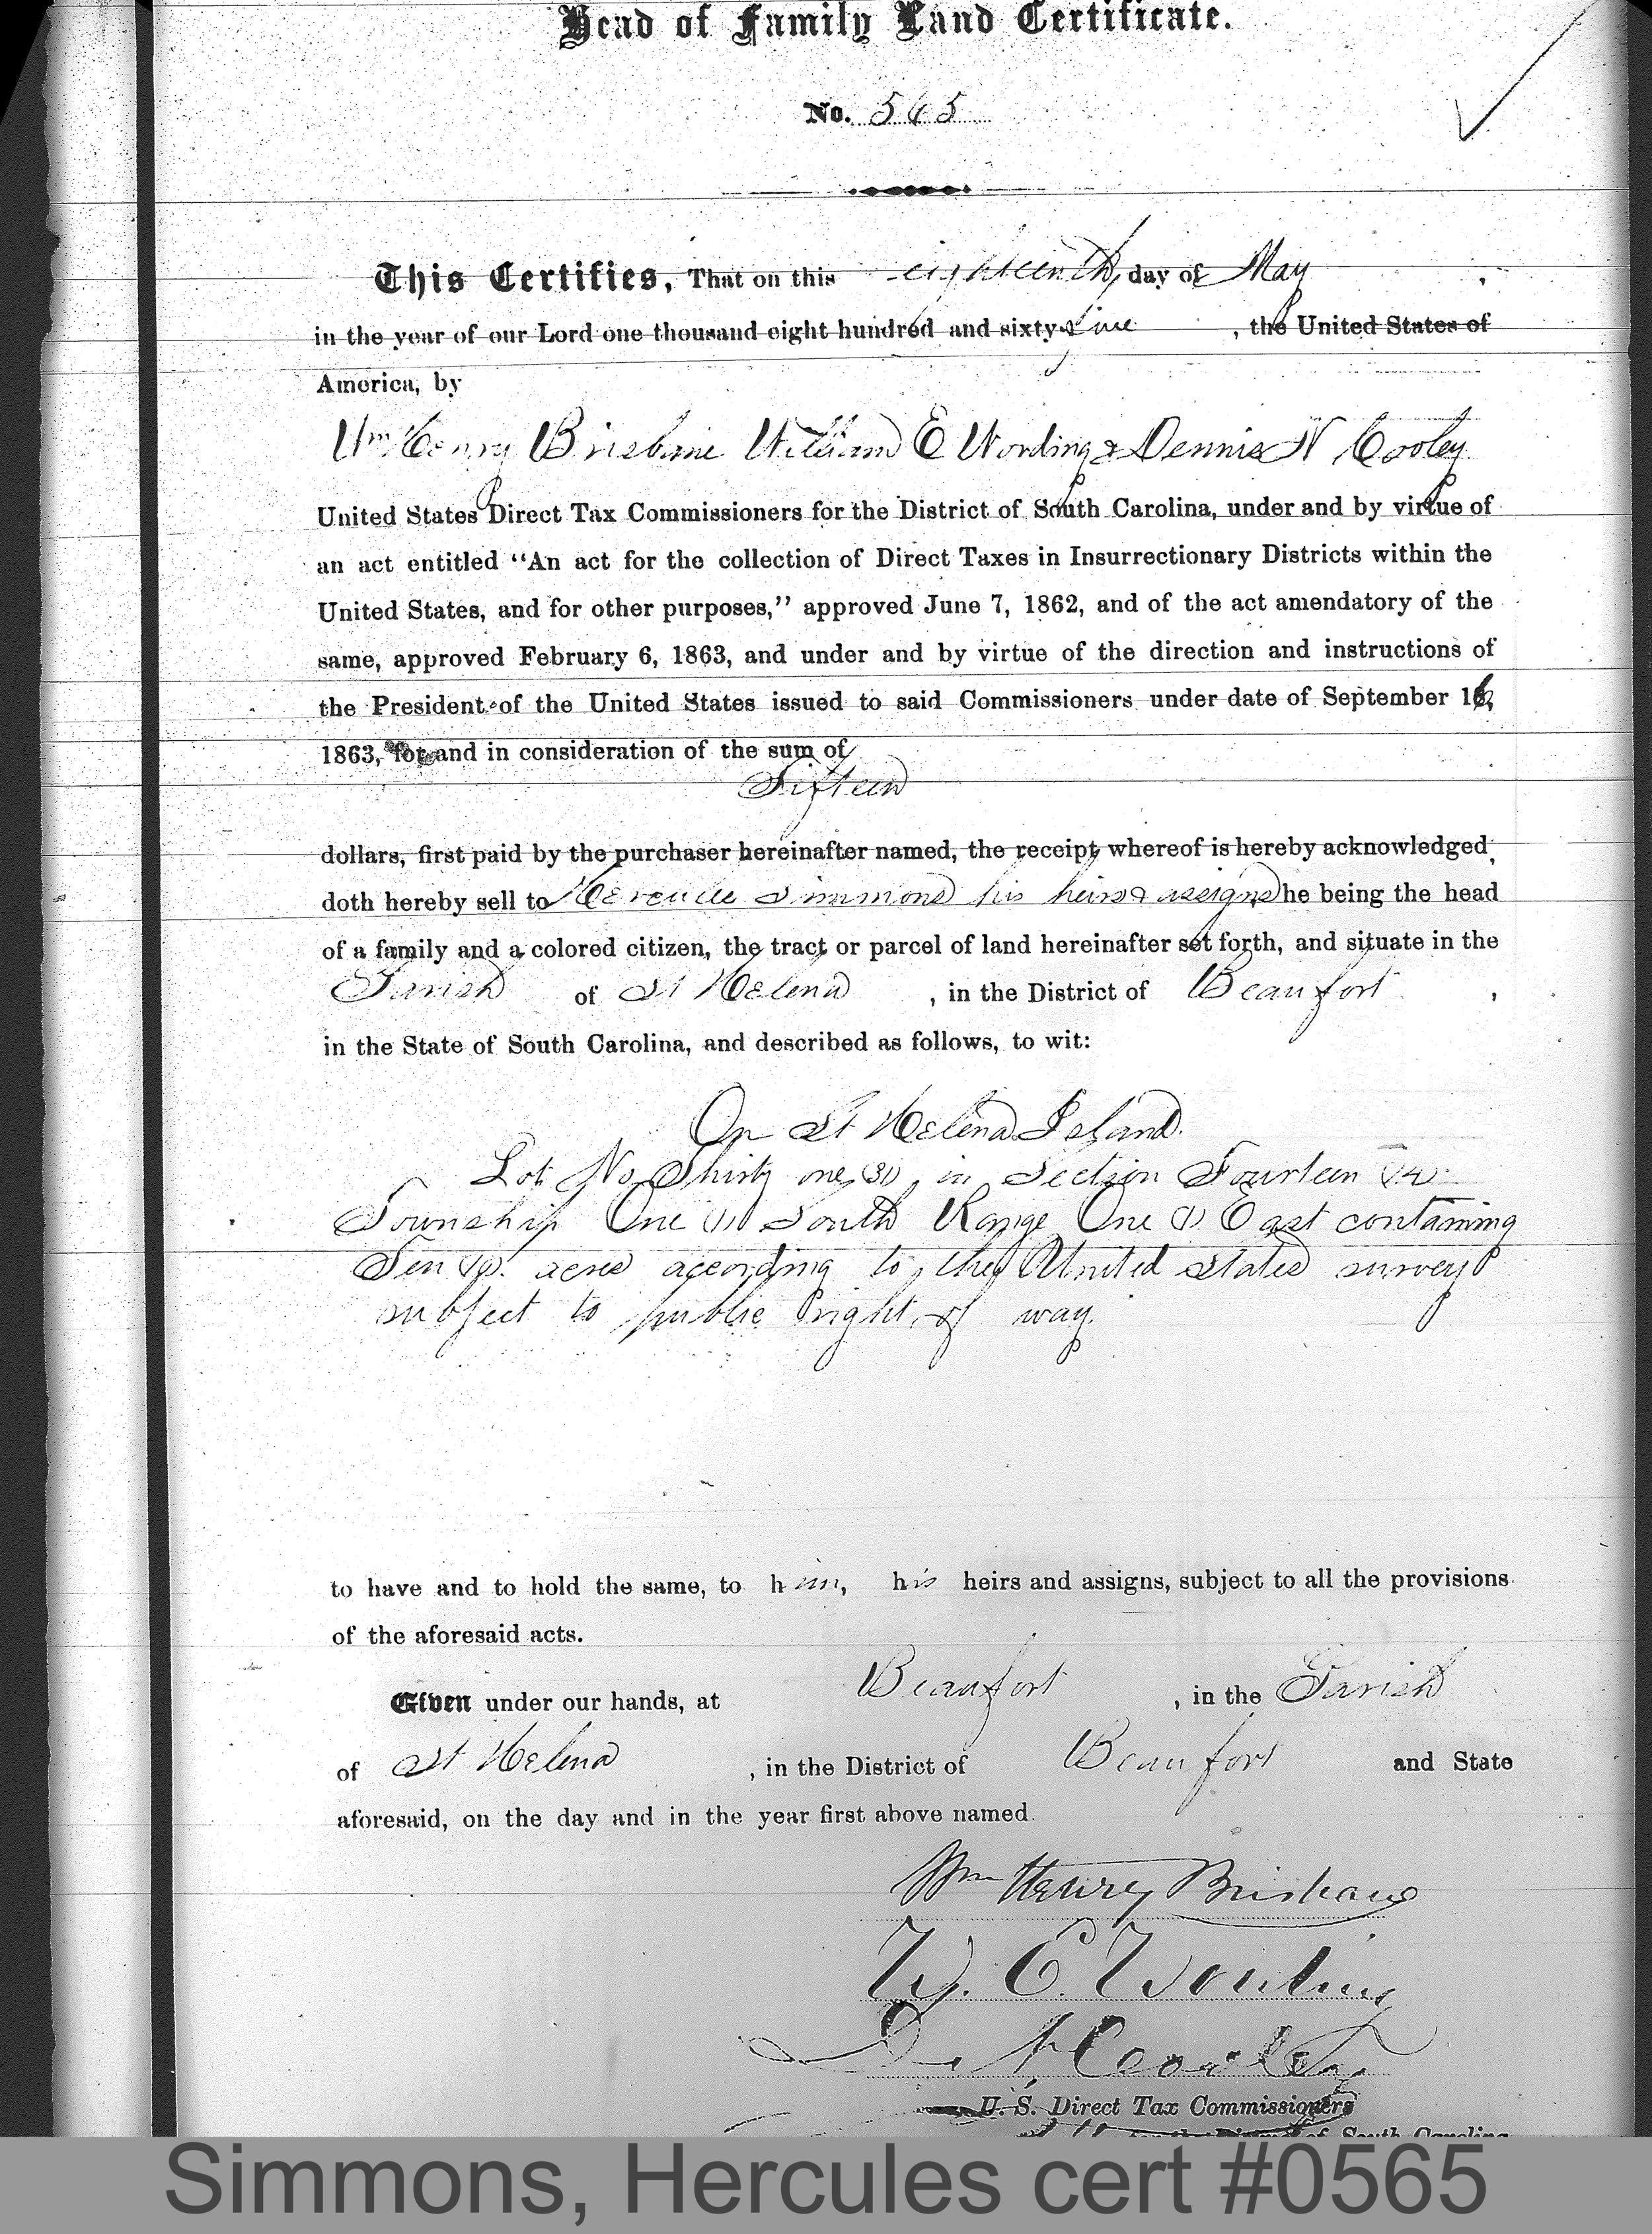 Head of Family Land Certificate.
No. 565
This Certifies, That on this eighteenth day of May,
in the year of our Lord one thousand eight hundred and sixty five, the United States of
America, by
Wm Henry Brisbane William E Wording & Dennis N Cooley
United States Direct Tax Commissioners for the District of South Carolina, under and by virtue of
an act entitled “An act for the collection of Direct Taxes in Insurrectionary Districts within the
United States, and for other purposes,” approved June 7, 1862, and of the act amendatory of the
same, approved February 6, 1863, and under and by virtue of the direction and instructions of
the President of the United States issued to said Commissioners under date of September 16,
1863, for and in consideration of the sum of
Fifteen
dollars, first paid by the purchaser hereinafter named, the receipt whereof is hereby acknowledged,
doth hereby sell to Simmons his heirs & assigns he being the head
of a family and a colored citizen, the tract or parcel of land hereinafter set forth, and situate in the
Parish of St Helena, in the District of Beaufort,
in the State of South Carolina, and described as follows, to wit:
On St Helena Island.
Lot No Thirty one (31) in Section Fourteen (14)
Township One (1) South Range One (1) East containing
Ten (10) acres according to the United States survey
subject to public right of way.
to have and to hold the same, to him, his heirs and assigns, subject to all the provisions
of the aforesaid acts.
Given under our hands, at Beaufort, in the Parish
of St Helena, in the District of Beaufort and State
aforesaid, on the day and in the year first above named.
Wm Henry Brisbane
W. E. Wording
D. N. Cooley
U. S. Direct Tax Commissioners
for the District of South Carolina
Simmons, Hercules cert #0565